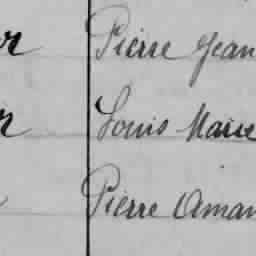 Pierre Jean
Louis Marie
Pierre Aman